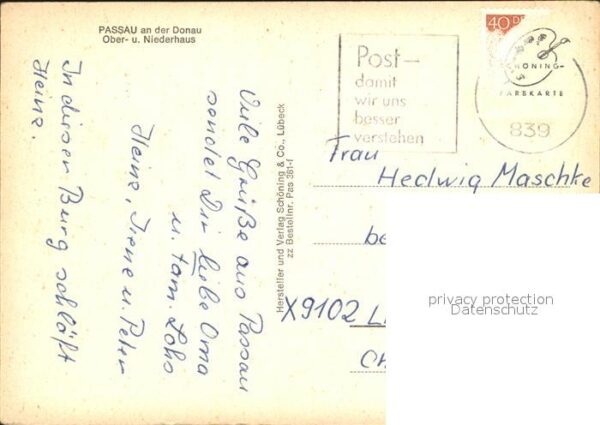 PASSAU an der Donau
Ober- u. Niederhaus
Viele Grüße aus Passau
sendet Dir liebe Oma
u. Fam. Lohs
Heinz, Irene u. Peter
In dieser Burg schläft
Heinz.
Hersteller und Verlag Schöning & Co., Lübeck
zz Bestellnr. Pas 381-f
Post–
damit
wir uns
besser
verstehen
40
SCHÖNING-
FARBKARTE
839
Frau
Hedwig Maschke
be
X9102 L
Ch
privacy protection
Datenschutz